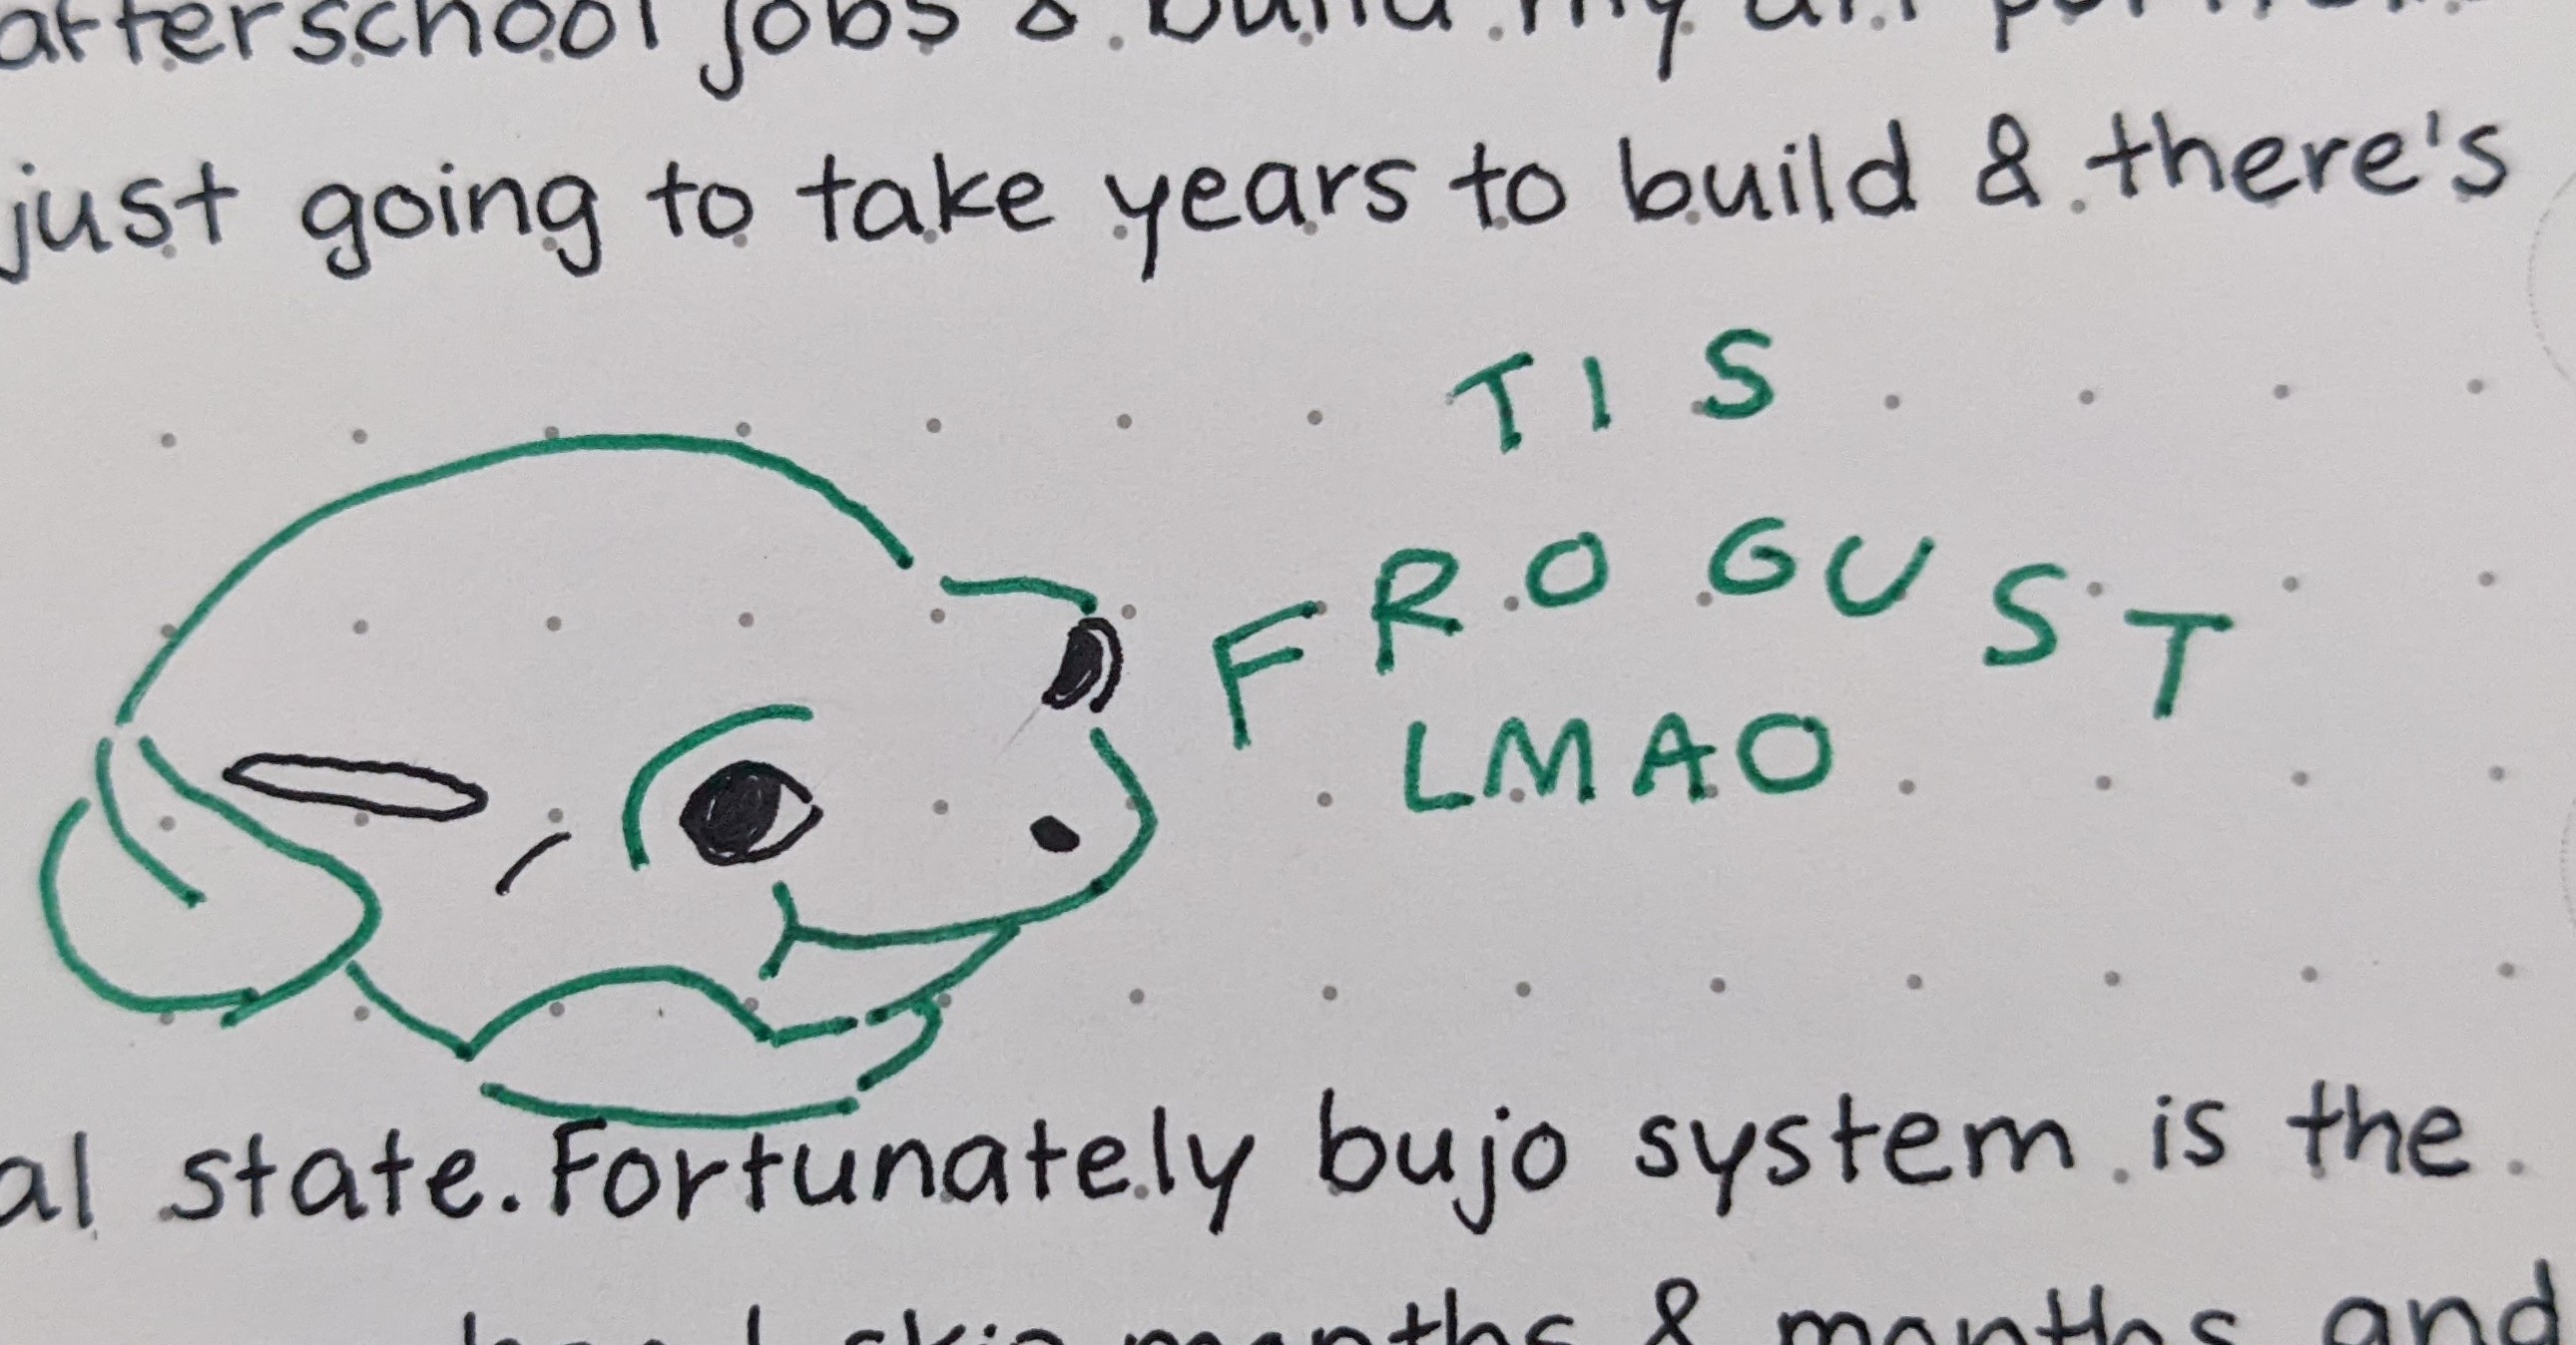 afterschool jobs & build my art
just going to take years to build & there's
TIS
FROGUST
LMAO
al state. Fortunately bujo system is the
skip months & months and